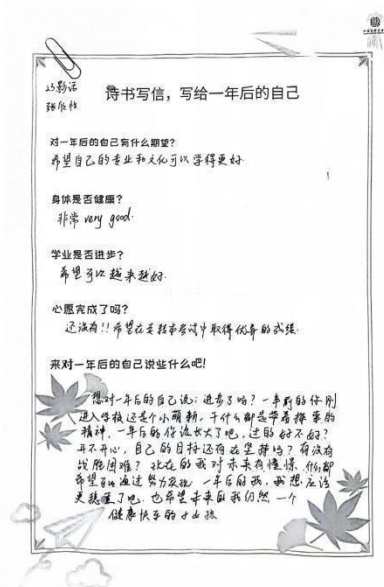 23影活
诗书写信，写给一年后的自己
对一年后的自己有什么期望？
希望自己的专业和文化可以学得更好.
身体是否健康？
非常 very good.
学业是否进步？
希望可以越来越好.
心愿完成了吗？
还没有!! 希望在专转本考试中取得优异的成绩.
来对一年后的自己说些什么吧！
想对一年后的自己说：进步了吗？一年前的你刚
进入学校还是个小萌新，干什么都是带着探索的
精神，一年后的你该长大了吧，过的好不好？
开不开心，自己的目标还有在坚持吗？有没有
战胜困难？现在的我对未来有憧憬，
希望可以通过努力实现，一年后的我，我想应该
更稳重了吧，也希望未来的我仍然一个
健康快乐的小女孩